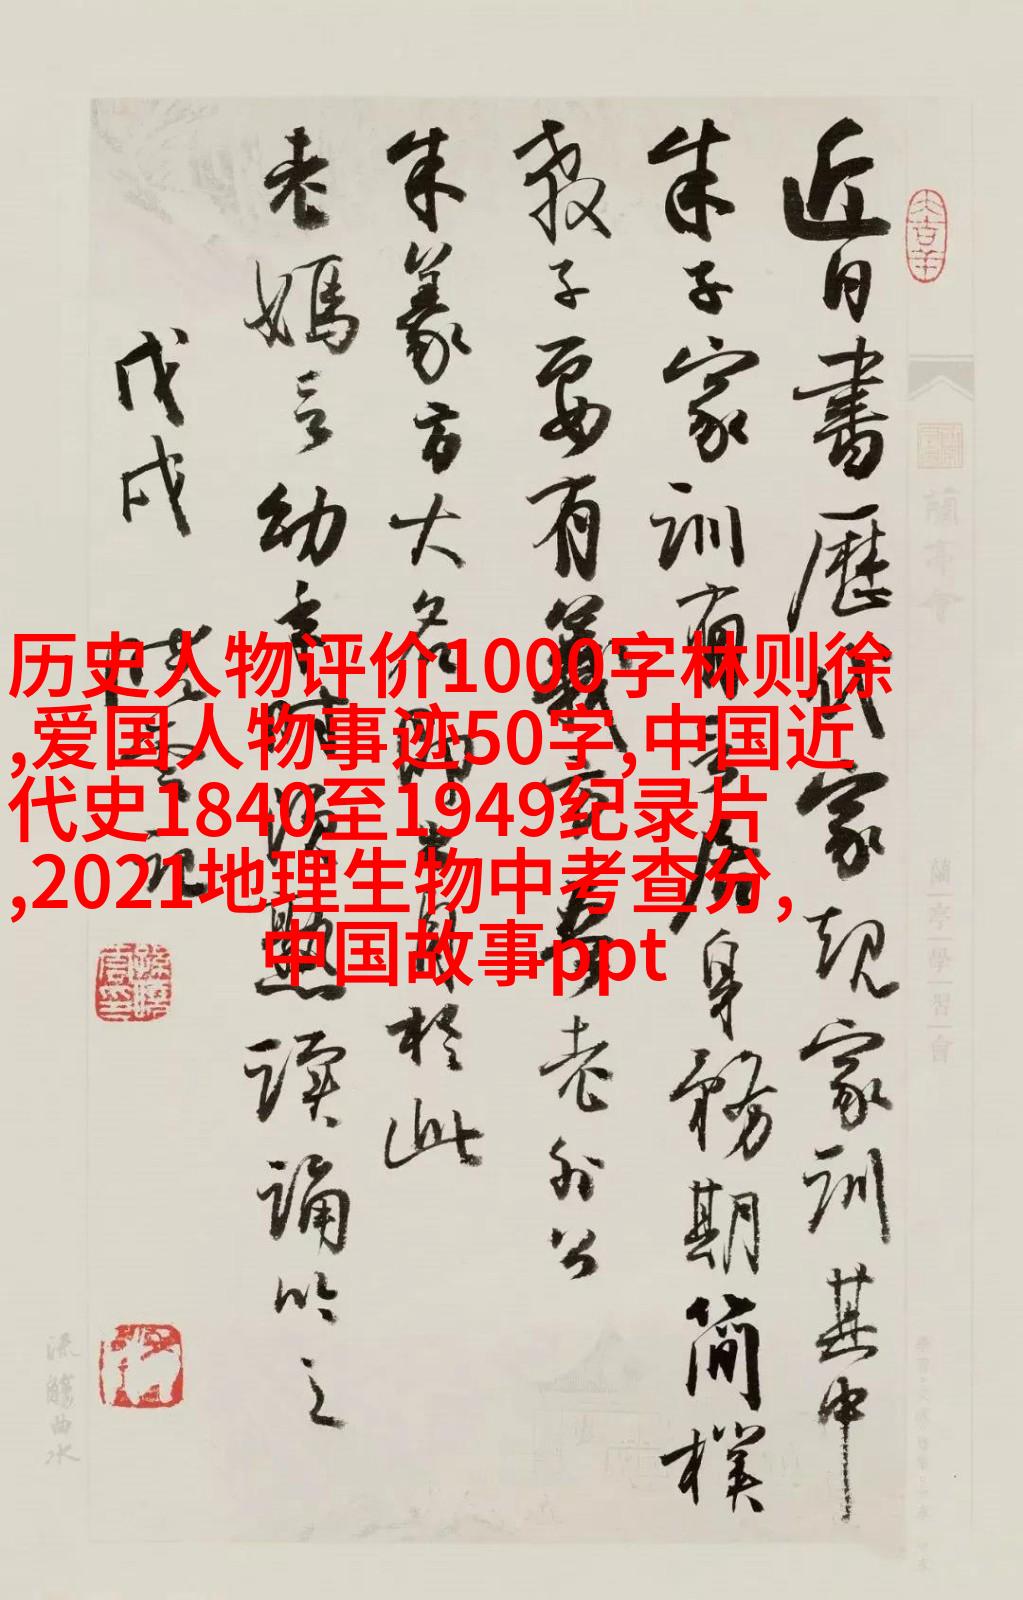 近日書歷代家規家訓其中
朱子家訓有言居身務期簡樸
教子要有義方老外公
朱篆方大名即出自於此
老媽言幼年時須熟讀誦吟之
戊戌記
历史人物评价1000字林则徐
,爱国人物事迹50字,中国近
代史1840至1949纪录片
,2021地理生物中考查分,
中国故事ppt
大吉羊
蘭亭會
蘭亭學習會
流觴曲水